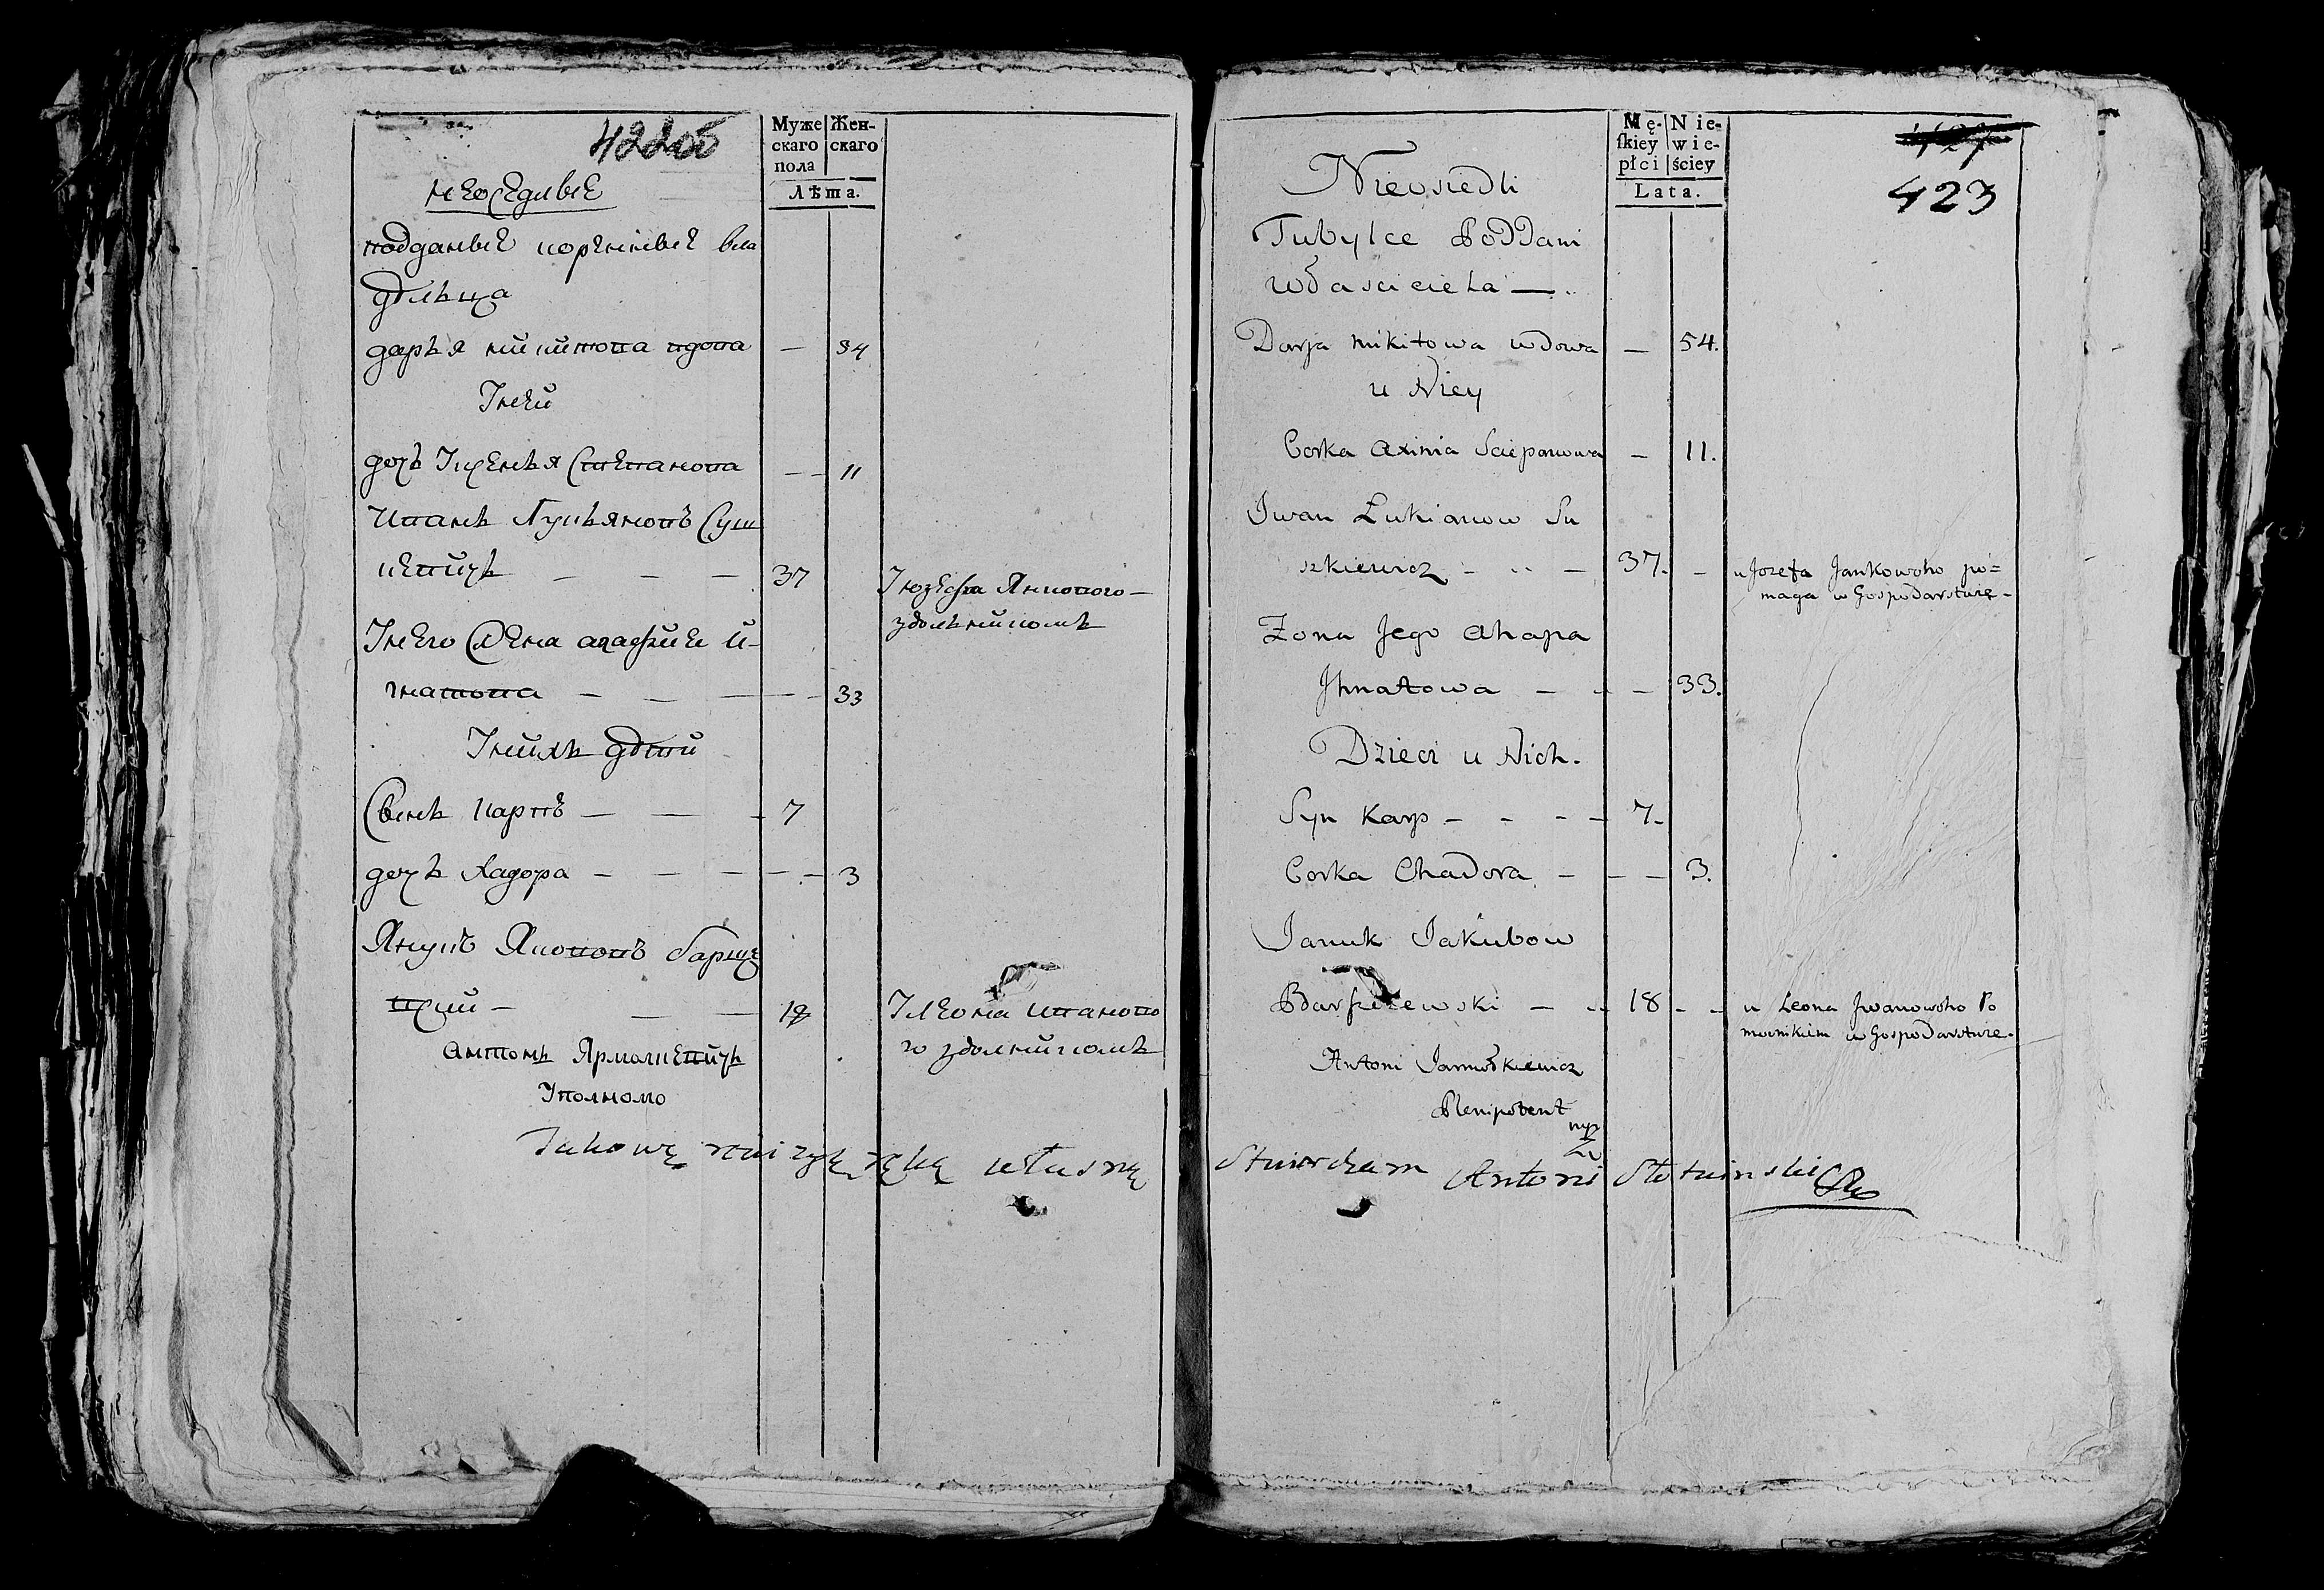 422об
Муже
скаго
пола
Жен-
скаго
Лѣта.
неоседлые
подданые коренные вла
дѣльца
дарья микитова вдова — 34
У ней
дочь Аксенья Степанова — — 11
Иванъ Лукьяновъ Суш
кевичь — — — 37
У юзефа Янкового —
здольникомъ
У него жена агафия И-
гнатова — — — — 33
У нихъ дѣти
Сынъ карпъ — — — 7
дочь хадора — — — — — 3
Янукъ Якововъ барще
вский — — — 18
У леона Иваново
го здолникомъ
антонъ Ярмошевичь
Уполномо
Takową rewizyą ręką własną
Mę-
skiey
płci
Nie-
wie-
ściey
Lata.
423
Nieosiedli
Tubylce Poddani
Właściciela —
Darja mikitowa wdowa — 54.
u Niey
Corka Axinia Sciepanowa — 11.
Iwan Lukianow Su
szkiewicz — — 37. —
u Jozefa Jankowoho po=
maga w Gospodarstwie —
Żona Jego Ahapa
Ihnatowa — — — 33.
Dzieci u Nich.
Syn Karp — — — — 7.
Corka Chadora — — — 3.
Januk Jakubow
Barszczewski — — 18 — —
u Leona Iwanowoho Po
mocnikiem w Gospodarstwie —
Antoni Jarmoszkiewicz
Plenipotent
mp
Stwierdzam Antoni Słotwinski